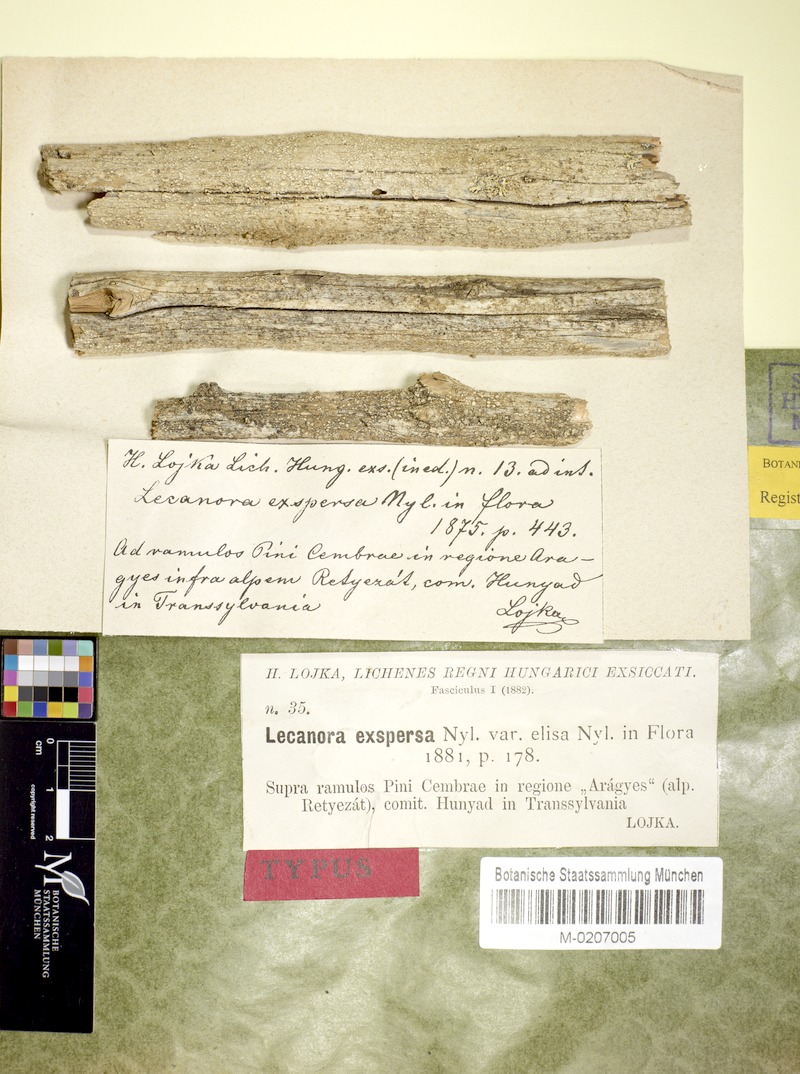 H. Lojka Lich. Hung. exs. (ined.) n. 13. ad int.
Lecanora exspersa Nyl. in flora
1875. p. 443.
Ad ramulos Pini Cembrae in regione Ara-
gyes infra alpem Retyezát, com. Hunyad
in Transsylvania
Lojka
BOTANI
Regist
H. LOJKA, LICHENES REGNI HUNGARICI EXSICCATI.
Fasciculus I (1882).
n. 35.
Lecanora exspersa Nyl. var. elisa Nyl. in Flora
1881, p. 178.
Supra ramulos Pini Cembrae in regione „Arágyes“ (alp.
Retyezát), comit. Hunyad in Transsylvania
LOJKA.
TYPUS
Botanische Staatssammlung München
M-0207005
0 1 2
cm
copyright reserved
M
BOTANISCHE
STAATSSAMMLUNG
MÜNCHEN